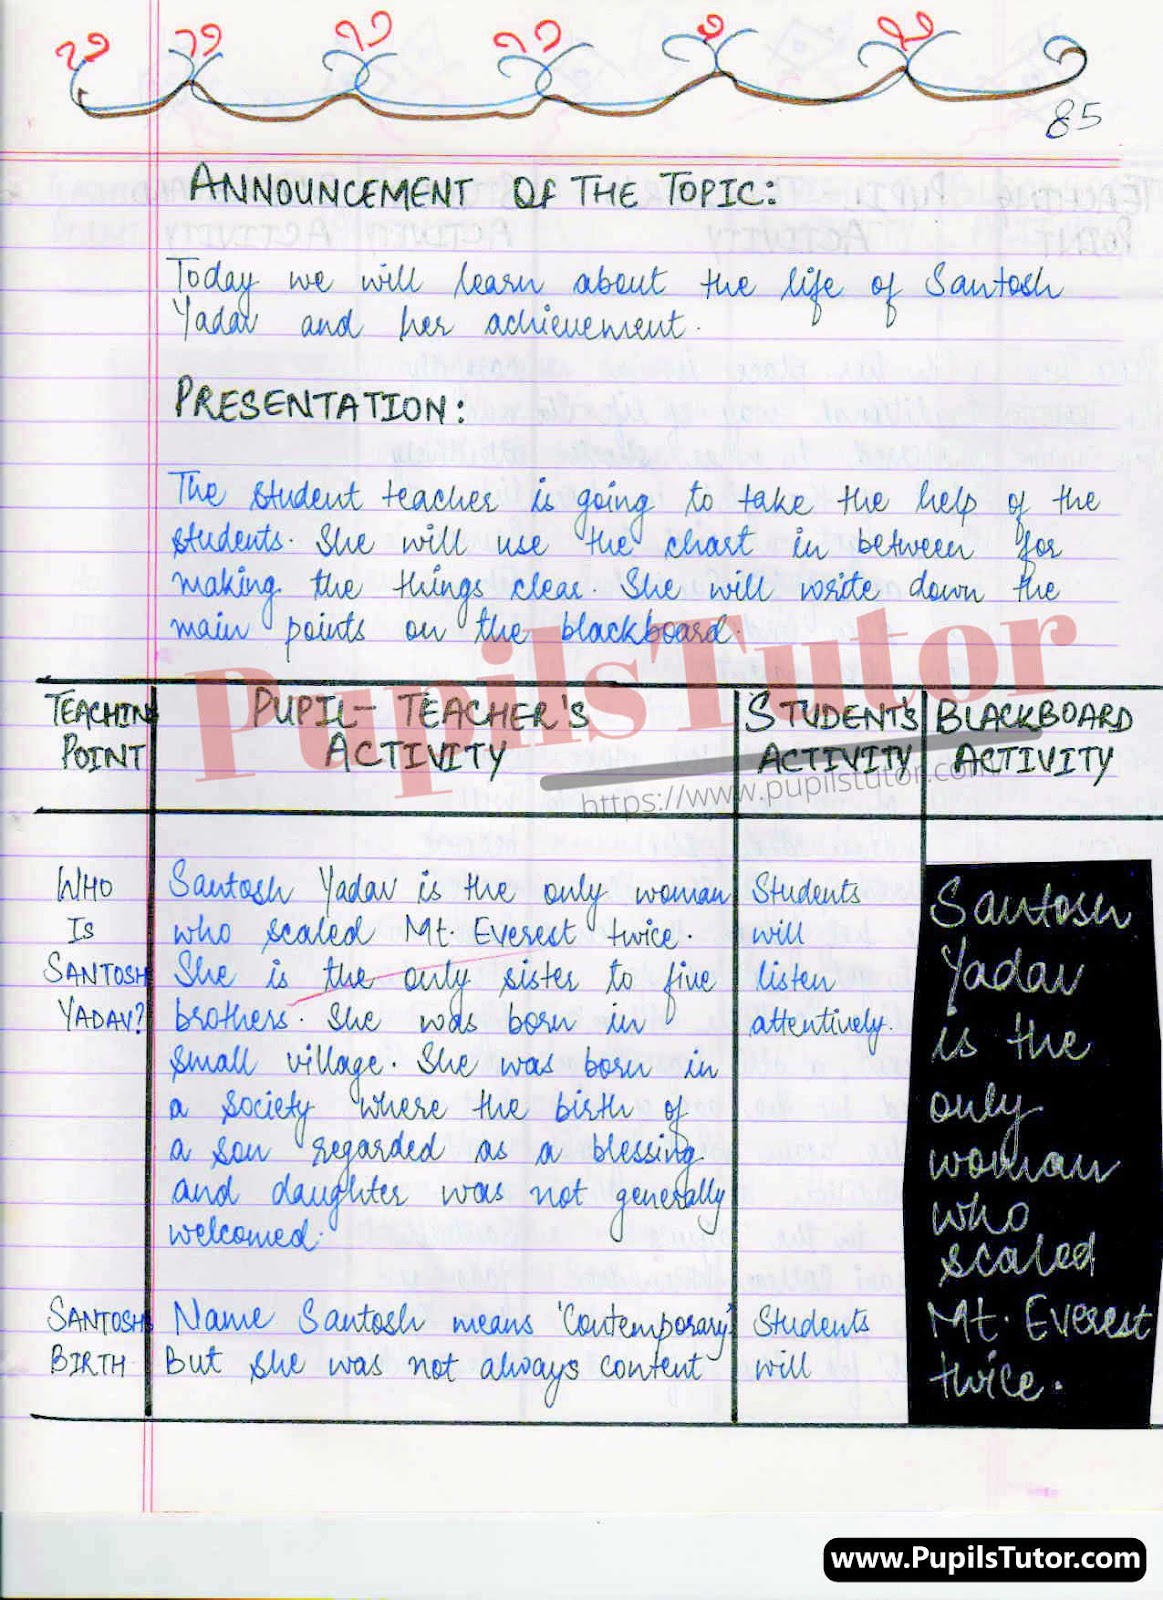 85
ANNOUNCEMENT OF THE TOPIC:
Today we will learn about the life of Santosh
Yadav and her achievement.
PRESENTATION:
The student teacher is going to take the help of the
students. She will use the chart in between for
making the things clear. She will write down the
main points on the blackboard.
PupilsTutor
https://www.pupilstutor.com
TEACHING
POINT
PUPIL-TEACHER'S
ACTIVITY
STUDENT'S
ACTIVITY
BLACKBOARD
ACTIVITY
WHO
IS
SANTOSH
YADAV?
Santosh Yadav is the only woman
who scaled Mt. Everest twice.
She is the only sister to five
brothers. She was born in
small village. She was born in
a society where the birth of
a son regarded as a blessing
and daughter was not generally
welcomed.
Students
will
listen
attentively.
Santosh
Yadav
is the
only
woman
who
scaled
Mt. Everest
twice.
SANTOSH
BIRTH
Name Santosh means 'Contemporary'
But she was not always content
Students
will
www.PupilsTutor.com